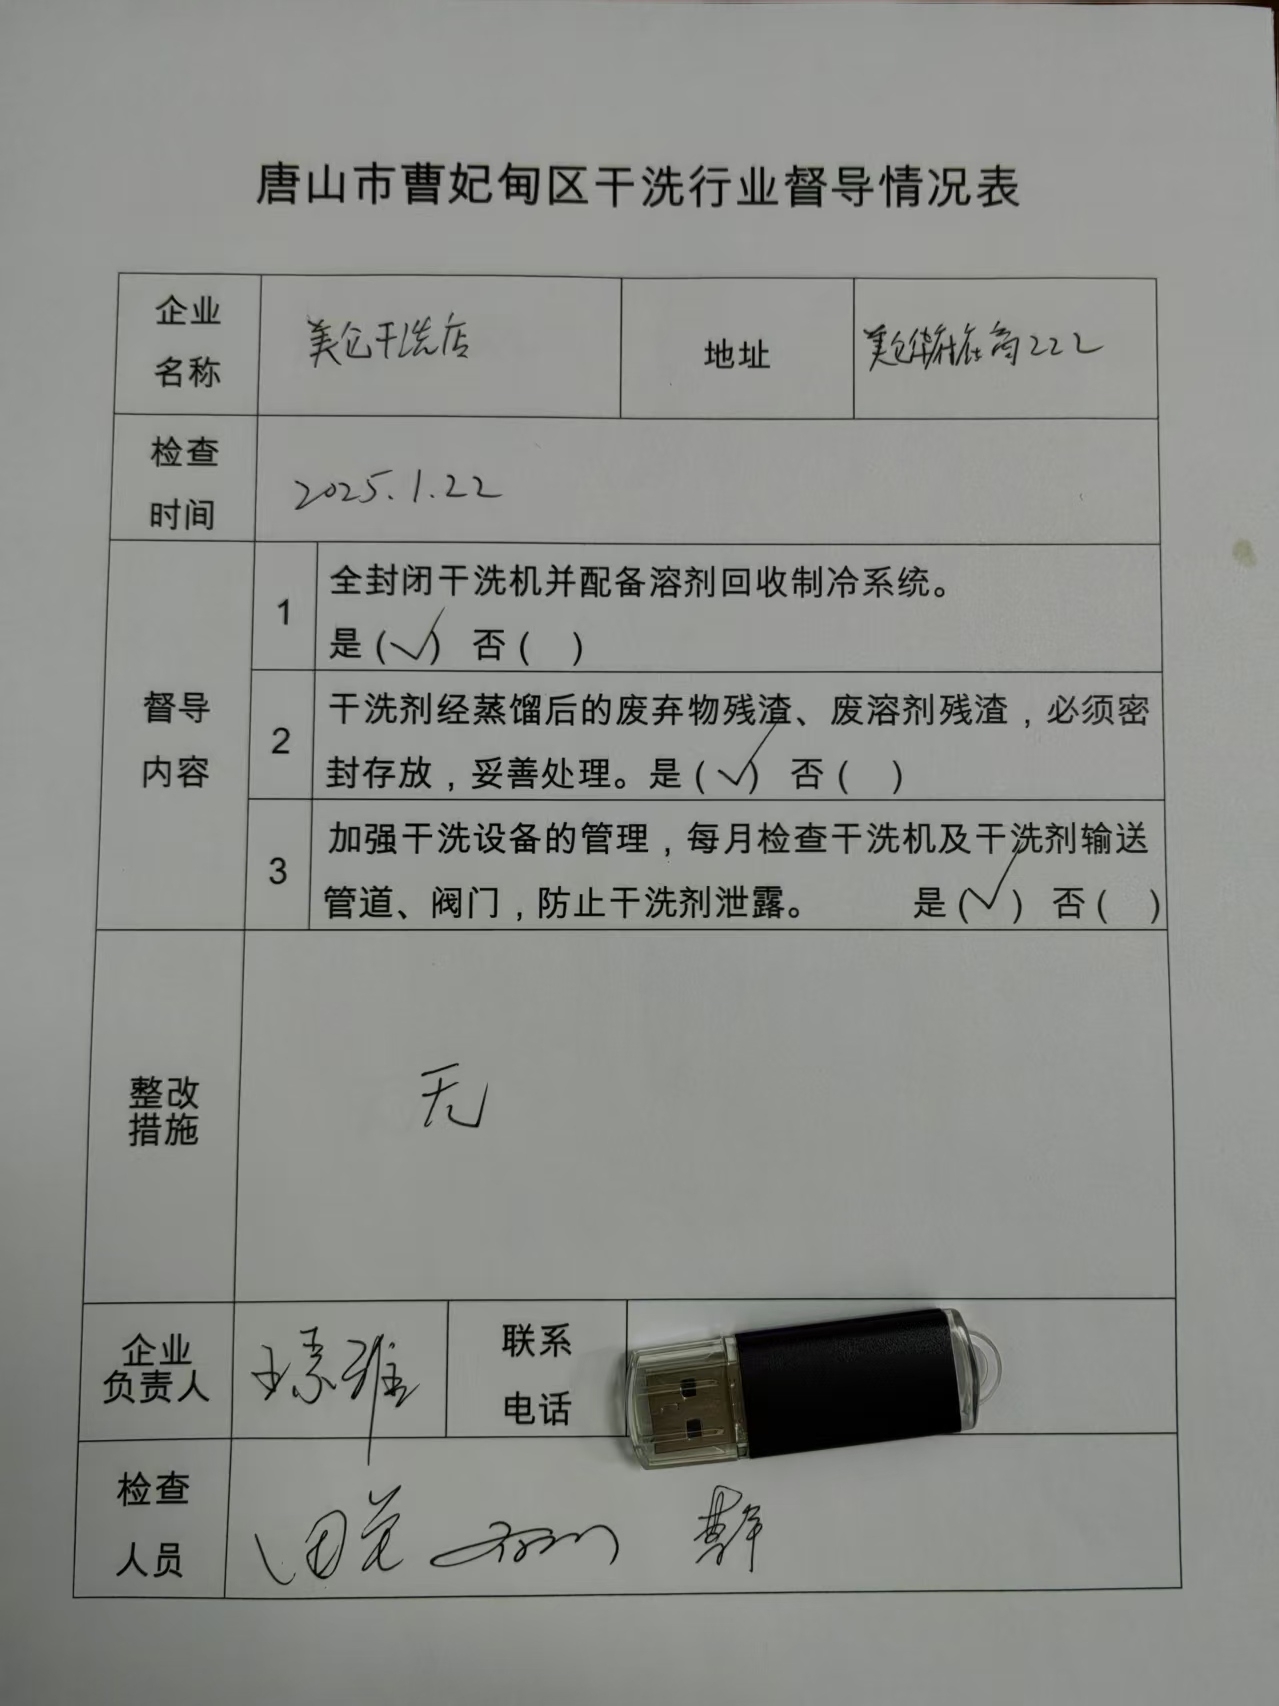 唐山市曹妃甸区干洗行业督导情况表
企业
名称
美仑干洗店
地址
222
检查
时间
2025.1.22
督导
内容
1
全封闭干洗机并配备溶剂回收制冷系统。
是(✓) 否( )
2
干洗剂经蒸馏后的废弃物残渣、废溶剂残渣，必须密
封存放，妥善处理。是(✓) 否( )
3
加强干洗设备的管理，每月检查干洗机及干洗剂输送
管道、阀门，防止干洗剂泄露。 是(✓) 否( )
整改
措施
无
企业
负责人
联系
电话
检查
人员